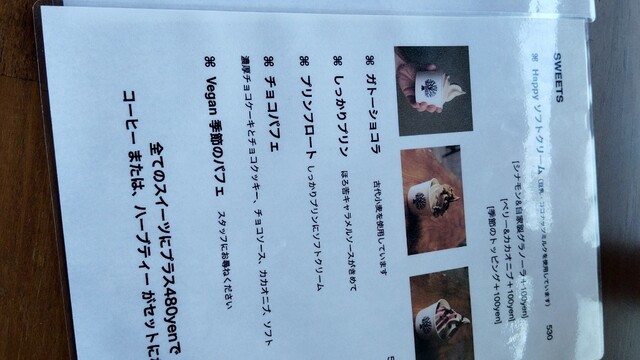 SWEETS
⌘ Happy ソフトクリーム (豆乳、ココナッツミルクを使用しています) 530
[シナモン&自家製グラノーラ+100yen]
[ベリー&カカオニブ+100yen]
[季節のトッピング+100yen]
⌘ ガトーショコラ 古代小麦を使用しています
⌘ しっかりプリン ほろ苦キャラメルソースがきめて
⌘ プリンフロート しっかりプリンにソフトクリーム
⌘ チョコパフェ
濃厚チョコケーキとチョコクッキー、チョコソース、カカオニブ、ソフト
⌘ Vegan 季節のパフェ スタッフにお尋ねください
全てのスイーツにプラス480yenで
コーヒー または、ハーブティー がセットに